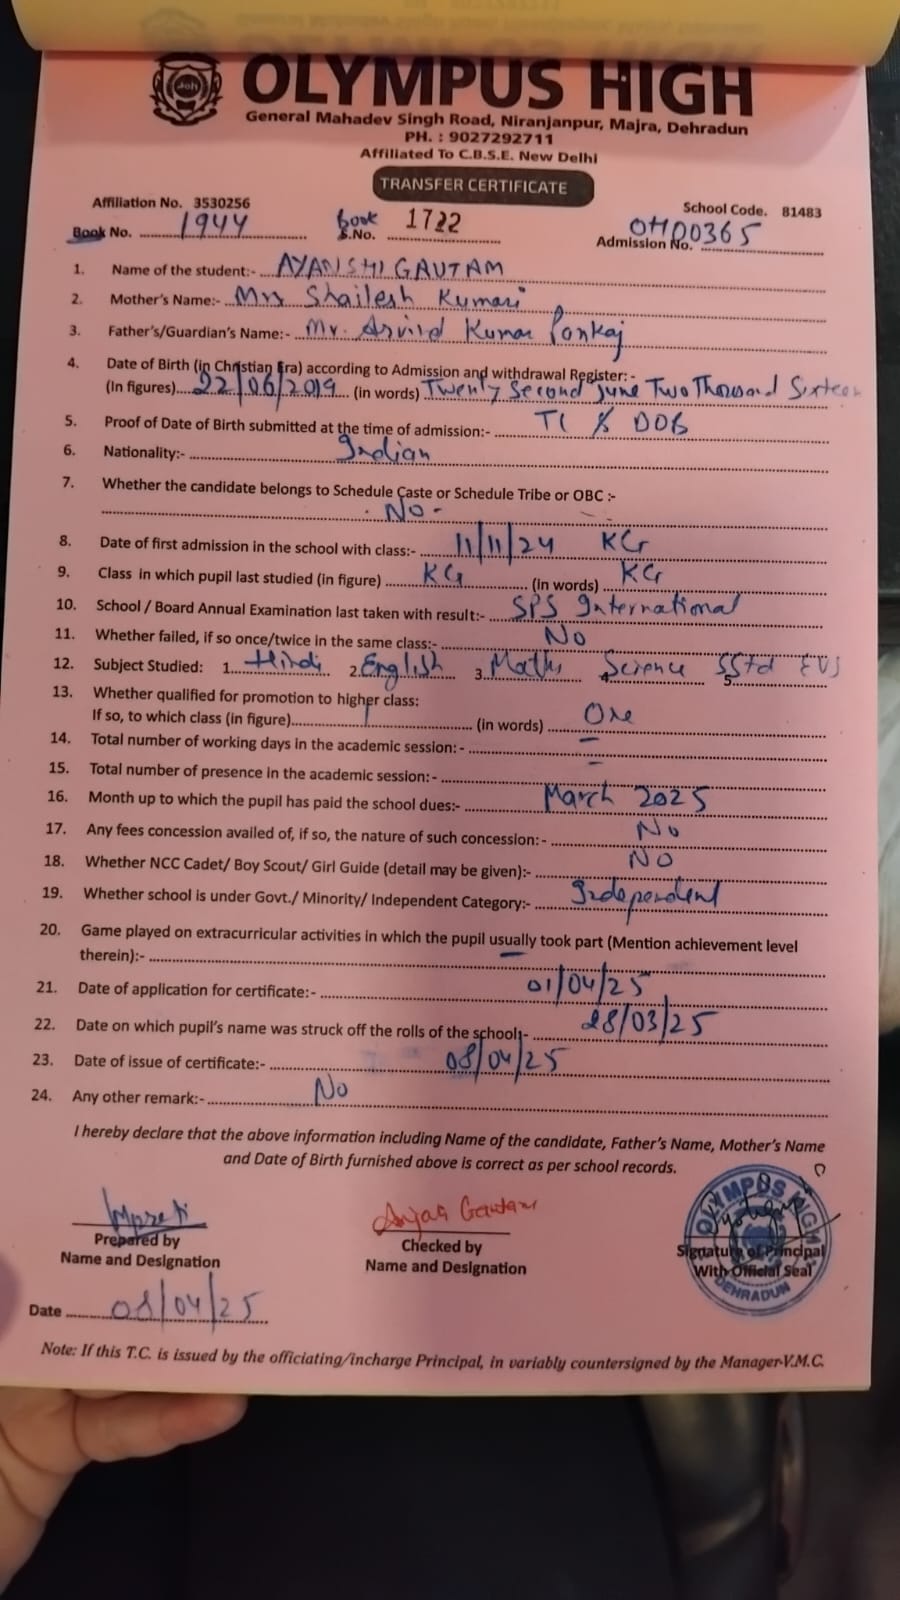 OLYMPUS HIGH
General Mahadev Singh Road, Niranjanpur, Majra, Dehradun
PH. : 9027292711
Affiliated To C.B.S.E. New Delhi
TRANSFER CERTIFICATE
Affiliation No. 3530256 School Code. 81483
Book No. 1944 Book S.No. 1722 Admission No. OH00365
1. Name of the student:- AYANSHI GAUTAM
2. Mother's Name:- Mrs Shailesh Kumari
3. Father's/Guardian's Name:- Mr. Arvind Kumar Pankaj
4. Date of Birth (in Christian Era) according to Admission and withdrawal Register:-
(In figures) 22/06/2019 (in words) Twenty Second June Two Thousand Sixteen
5. Proof of Date of Birth submitted at the time of admission:- TC & DOB
6. Nationality:- Indian
7. Whether the candidate belongs to Schedule Caste or Schedule Tribe or OBC :-
No -
8. Date of first admission in the school with class:- 11/11/24 KG
9. Class in which pupil last studied (in figure) KG (in words) KG
10. School / Board Annual Examination last taken with result:- SPS International
11. Whether failed, if so once/twice in the same class:- No
12. Subject Studied: 1. Hindi 2. English 3. Maths 4. Science 5. SStd EVS
13. Whether qualified for promotion to higher class:
If so, to which class (in figure) 1 (in words) One
14. Total number of working days in the academic session: - –
15. Total number of presence in the academic session:- –
16. Month up to which the pupil has paid the school dues:- March 2025
17. Any fees concession availed of, if so, the nature of such concession:- No
18. Whether NCC Cadet/ Boy Scout/ Girl Guide (detail may be given):- No
19. Whether school is under Govt./ Minority/ Independent Category:- Independent
20. Game played on extracurricular activities in which the pupil usually took part (Mention achievement level
therein):- –
21. Date of application for certificate:- 01/04/25
22. Date on which pupil's name was struck off the rolls of the school:- 28/03/25
23. Date of issue of certificate:- 08/04/25
24. Any other remark:- No
I hereby declare that the above information including Name of the candidate, Father's Name, Mother's Name
and Date of Birth furnished above is correct as per school records.
Gautam
OLYMPUS HIGH DEHRADUN
Prepared by Checked by Signature of Principal
Name and Designation Name and Designation With Official Seal
Date 08/04/25
Note: If this T.C. is issued by the officiating/incharge Principal, in variably countersigned by the Manager-V.M.C.